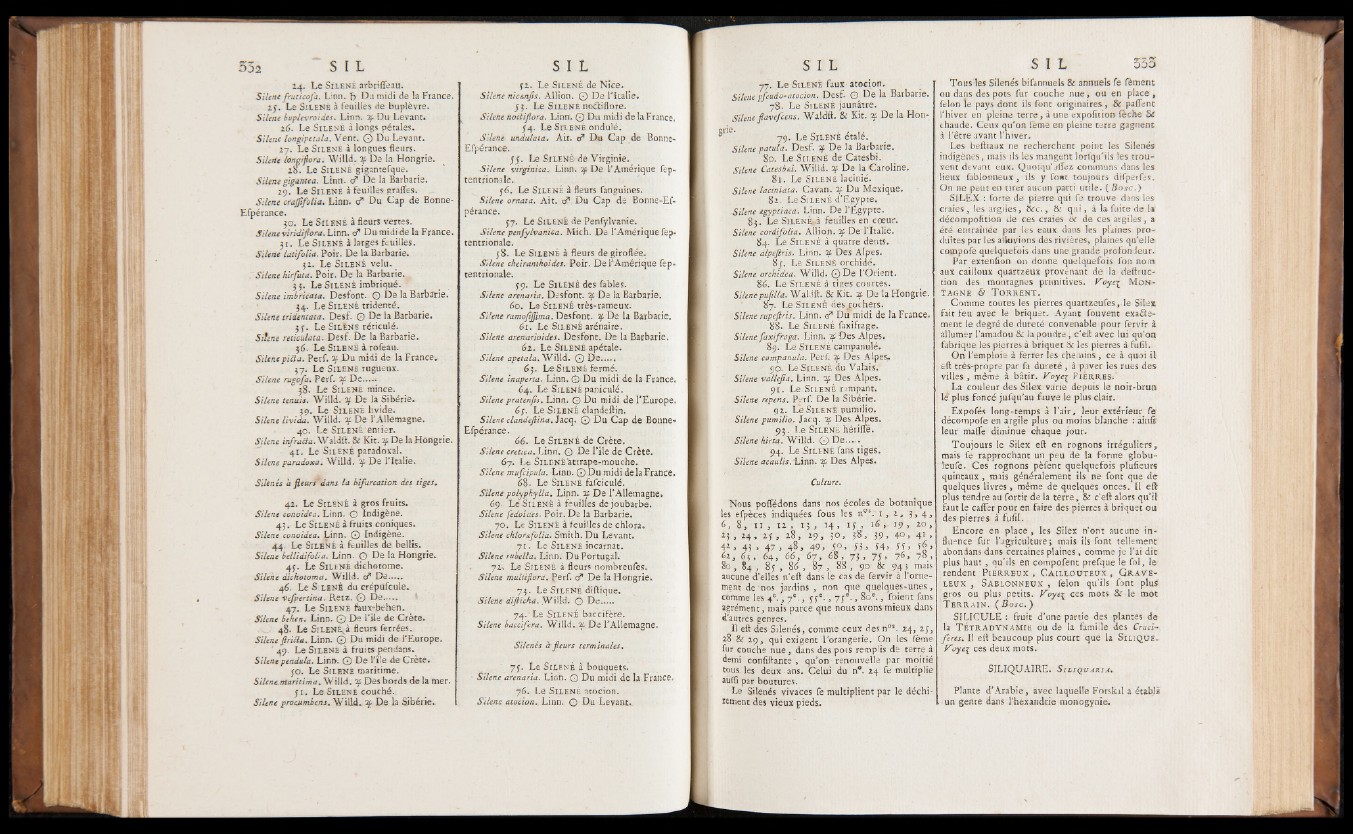 332 SIL
24. Le SILENÉ arbrisseau.
Silene fruticosa. Linn. ♄ Du midi de la France.
25. Le SILENÉ à feuilles de buplèvre.
Silene buplevroides. Linn. ♃ Du Levant.
26. Le SILENÉ à longs pétales.
Silene longipetala. Vent. ☉ Du Levant.
27. Le SILENÉ à longues fleurs.
Silene longiflora. Willd. ♃ De la Hongrie.
28. Le SILENÉ gigantesque.
Silene gigantea. Linn. ♂ De la Barbarie.
29. Le SILENÉ à feuilles grasses.
Silene crassifolia. Linn. ♂ Du Cap de Bonne-
Espérance.
30. Le SILENÉ à fleurs vertes.
Silene viridiflora. Linn. ♂ Du midi de la France.
31. Le SILENÉ à larges feuilles.
Silene latifolia. Poir. De la Barbarie.
32. Le SILENÉ velu.
Silene hirsuta. Poir. De la Barbarie.
33. Le SILENÉ imbriqué.
Silene imbricata. Desfont. ☉ De la Barbarie.
34. Le SILENÉ tridenté.
Silene tridentata. Desf. ☉ De la Barbarie.
35. Le SILENÉ réticulé.
Silene reticulata. Desf. De la Barbarie.
36. Le SILENÉ à roseau.
Silene picta. Pers. ♃ Du midi de la France.
37. Le SILENÉ rugueux.
Silene rugosa. Pers. ♃ De.....
38. Le SILENÉ mince.
Silene tenuis. Willd. ♃ De la Sibérie.
39. Le SILENÉ livide.
Silene livida. Willd. ♃ De l'Allemagne.
40. Le SILENÉ entier.
Silene infracta. Waldst. & Kit. ♃ De la Hongrie.
41. Le SILENÉ paradoxal.
Silene paradoxa. Willd. ♃ De l'Italie.
Silenés à fleurs dans la bifurcation des tiges.
42. Le SILENÉ à gros fruits.
Silene conoidea. Linn. ☉ Indigène.
43. Le SILENÉ à fruits coniques.
Silene conoidea. Linn. ☉ Indigène.
44. Le SILENÉ à feuilles de bellis.
Silene bellidifolia. Linn. ☉ De la Hongrie.
45. Le SILENÉ dichotome.
Silene dichotoma. Willd. ♂ De.....
46. Le SILENÉ du crépuscule.
Silene vespertina. Retz. ☉ De.....
47. Le SILENÉ faux-behen.
Silene behen. Linn. ☉ De l'île de Crète.
48. Le SILENÉ à fleurs serrées.
Silene stricta. Linn. ☉ Du midi de l'Europe.
49. Le SILENÉ à fruits pendans.
Silene pendula. Linn. ☉ De l'île de Crète.
50. Le SILENÉ maritime.
Silene maritima. Willd. ♃ Des bords de la mer.
51. Le SILENÉ couché.
Silene procumbens. Willd. ♃ De la Sibérie.
SIL
52. Le SILENÉ de Nice.
Silene nicensis. Allion. ☉ De l'Italie.
53. Le SILENÉ noctiflore.
Silene noctiflora. Linn. ☉ Du midi de la France.
54. Le SILENÉ ondulé.
Silene undulata. Ait. ♂ Du Cap de Bonne-
Espérance.
55. Le SILENÉ de Virginie.
Silene virginica. Linn. ♃ De l'Amérique sep-
tentrionale.
56. Le SILENÉ à fleurs sanguines.
Silene ornata. Ait. ♂ Du Cap de Bonne-Es-
pérance.
57. Le SILENÉ de Pensylvanie.
Silene pensylvanica. Mich. De l'Amérique sep-
tentrionale.
58. Le SILENÉ à fleurs de giroflée.
Silene cheiranthoides. Poir. De l'Amérique sep-
tentrionale.
59. Le SILENÉ des sables.
Silene arenaria. Desfont. ♃ De la Barbarie.
60. Le SILENÉ très-rameux.
Silene ramosissima. Desfont. ♃ De la Barbarie.
61. Le SILENÉ arénaire.
Silene arenarioides. Desfont. De la Barbarie.
62. Le SILENÉ apétale.
Silene apetala. Willd. ☉ De.....
63. Le SILENÉ fermé.
Silene inaperta. Linn. ☉ Du midi de la France.
64. Le SILENÉ paniculé.
Silene pratensis. Linn. ☉ Du midi de l'Europe.
65. Le SILENÉ clandestin.
Silene clandestina. Jacq. ☉ Du Cap de Bonne-
Espérance.
66. Le SILENÉ de Crète.
Silene cretica. Linn. ☉ De l'île de Crète.
67. Le SILENÉ attrape-mouche.
Silene muscipula. Linn. ☉ Du midi de la France.
68. Le SILENÉ fasciculé.
Silene polyphylla. Linn. ♃ De l'Allemagne.
69. Le SILENÉ à feuilles de joubarbe.
Silene sedoides. Poir. De la Barbarie.
70. Le SILENÉ à feuilles de chlora.
Silene chlorafolia. Smith. Du Levant.
71. Le SILENÉ incarnat.
Silene rubella. Linn. Du Portugal.
72. Le SILENÉ à fleurs nombreuses.
Silene multiflora. Pers. ♂ De la Hongrie.
73. Le SILENÉ distique.
Silene disticha. Willd. ☉ De.....
74. Le SILENÉ baccifère.
Silene baccifera. Willd. ♃ De l'Allemagne.
Silenés à fleurs terminales.
75. Le SILENÉ à bouquets.
Silene arenaria. Linn. ☉ Du midi de la France.
76. Le SILENÉ atocion.
Silene atocion. Linn. ☉ Du Levant.
SIL
77. Le SILENÉ faux-atocion.
Silene pseudo-atocion. Desf. ☉ De la Barbarie.
78. Le SILENÉ jaunâtre.
Silene flavescens. Waldst. & Kit. ♃ De la Hon-
grie.
79. Le SILENÉ étalé.
Silene patula. Desf. ♃ De la Barbarie.
80. Le SILENÉ de Catesbi.
Silene Catesbæi. Willd. ♃ De la Caroline.
81. Le SILENÉ lacinié.
Silene laciniata. Cavan. ♃ Du Mexique.
82. Le SILENÉ d'Égypte.
Silene egyptiaca. Linn. De l'Égypte.
83. Le SILENÉ à feuilles en cœur.
Silene cordifolia. Allion. ♃ De l'Italie.
84. Le SILENÉ à quatre dents.
Silene alpestris. Linn. ♃ Des Alpes.
85. Le SILENÉ orchidé.
Silene orchidea. Willd. ☉ De l'Orient.
86. Le SILENÉ à tiges courtes.
Silene pusilla. Waldst. & Kit. ♃ De la Hongrie.
87. Le SILENÉ des rochers.
Silene rupestris. Linn. ♂ Du midi de la France.
88. Le SILENÉ saxifrage.
Silene saxifraga. Linn. ♃ Des Alpes.
89. Le SILENÉ campanulé.
Silene campanula. Pers. ♃ Des Alpes.
90. Le SILENÉ du Valais.
Silene vallesia. Linn. ♃ Des Alpes.
91. Le SILENÉ rampant.
Silene repens. Pers. De la Sibérie.
92. Le SILENÉ pumilio.
Silene pumilio. Jacq. ♃ Des Alpes.
93. Le SILENÉ hérissé.
Silene hirta. Willd. ☉ De.....
94. Le SILENÉ sans tiges.
Silene acaulis. Linn. ♃ Des Alpes.
Culture.
Nous possédons dans nos écoles de botanique
les espèces indiquées sous les nos. 1, 2, 3, 4,
6, 8, 11, 12, 13, 14, 15, 16, 19, 20,
23, 24, 25, 28, 29, 30, 38, 39, 40, 41,
42, 43, 47, 48, 49, 50, 53, 54, 55, 56,
62, 63, 64, 66, 67, 68, 73, 75, 76, 78,
80, 84, 85, 86, 87, 88, 90 & 94; mais
aucune d'elles n'est dans le cas de servir à l'orne-
ment de nos jardins, non que quelques-unes,
comme les 4e., 7e., 55e., 75e., 80e., soient sans
agrément, mais parce que nous avons mieux dans
d'autres genres.
Il est des Silenés, comme ceux des nos. 24, 25,
28 & 29, qui exigent l'orangerie. On les sème
sur couche nue, dans des pots remplis de terre à
demi consistante, qu'on renouvelle par moitié
tous les deux ans. Celui du n°. 24 se multiplie
aussi par boutures.
Le Silenés vivaces se multiplient par le déchi-
rement des vieux pieds.
SIL 333
Tous les Silenés bisannuels & annuels se sèment
ou dans des pots sur couche nue, ou en place,
selon le pays dont ils sont originaires, & passent
l'hiver en pleine terre, à une exposition sèche &
chaude. Ceux qu'on sème en pleine terre gagnent
à l'être avant l'hiver.
Les bestiaux ne recherchent point les Silenés
indigènes, mais ils les mangent lorsqu'ils les trou-
vent devant eux. Quoiqu'assez communs dans les
lieux sablonneux, ils y sont toujours dispersés.
On ne peut en tirer aucun parti utile. (Bosc.)
SILEX : sorte de pierre qui se trouve dans les
craies, les argiles, &c., & qui, à la suite de la
décomposition de ces craies & de ces argiles, a
été entraînée par les eaux dans les plaines pro-
duites par les alluvions des rivières, plaines qu'elle
compose quelquefois dans une grande profondeur.
Par extension on donne quelquefois son nom
aux cailloux quartzeux provenant de la destruc-
tion des montagnes primitives. Voyez MON-
TAGNE & TORRENT.
Comme toutes les pierres quartzeuses, le Silex
fait feu avec le briquet. Ayant souvent exacte-
ment le degré de dureté convenable pour servir à
allumer l'amadou & la poudre, c'est avec lui qu'on
fabrique les pierres à briquet & les pierres à fusil.
On l'emploie à ferrer les chemins, ce à quoi il
est très-propre par sa dureté, à paver les rues des
villes, même à bâtir. Voyez PIERRES.
La couleur des Silex varie depuis le noir-brun
le plus foncé jusqu'au fauve le plus clair.
Exposés long-temps à l'air, leur extérieur se
décompose en argile plus ou moins blanche : ainsi
leur masse diminue chaque jour.
Toujours le Silex est en rognons irréguliers,
mais se rapprochant un peu de la forme globu-
leuse. Ces rognons pèsent quelquefois plusieurs
quintaux, mais généralement ils ne sont que de
quelques livres, même de quelques onces. Il est
plus tendre au sortir de la terre, & c'est alors qu'il
faut le casser pour en faire des pierres à briquet ou
des pierres à fusil.
Encore en place, les Silex n'ont aucune in-
fluence sur l'agriculture; mais ils sont tellement
abondans dans certaines plaines, comme je l'ai dit
plus haut, qu'ils en composent presque le sol, le
rendent PIERREUX, CAILLOUTEUX, GRAVE-
LEUX, SABLONNEUX, selon qu'ils sont plus
gros ou plus petits. Voyez ces mots & le mot
TERRAIN. (Bosc.)
SILICULE : fruit d'une partie des plantes de
la TÉTRADYNAMIE ou de la famille des Cruci-
fères. Il est beaucoup plus court que la SILIQUE.
Voyez ces deux mots.
SILIQUAIRE. SILIQUARIA.
Plante d'Arabie, avec laquelle Forskal a établi
un genre dans l'hexandrie monogynie.